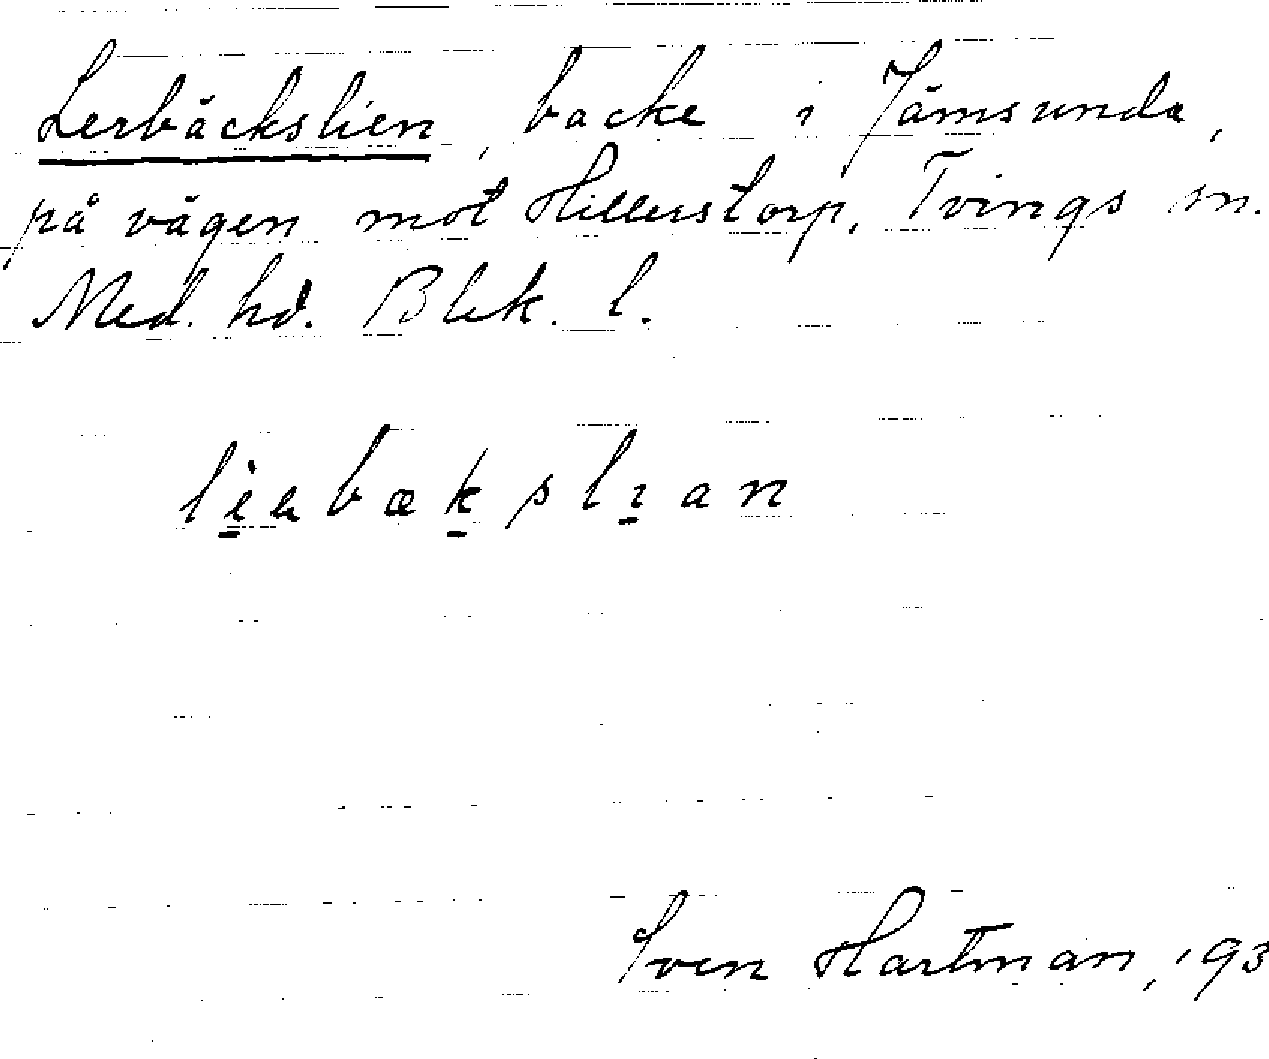 Lerbäckslien, backe i Jämsunda,
på vägen mot Hillerstorp, Tvings sn.
Med. hd. Blek. l.
Sven Hartman, 193